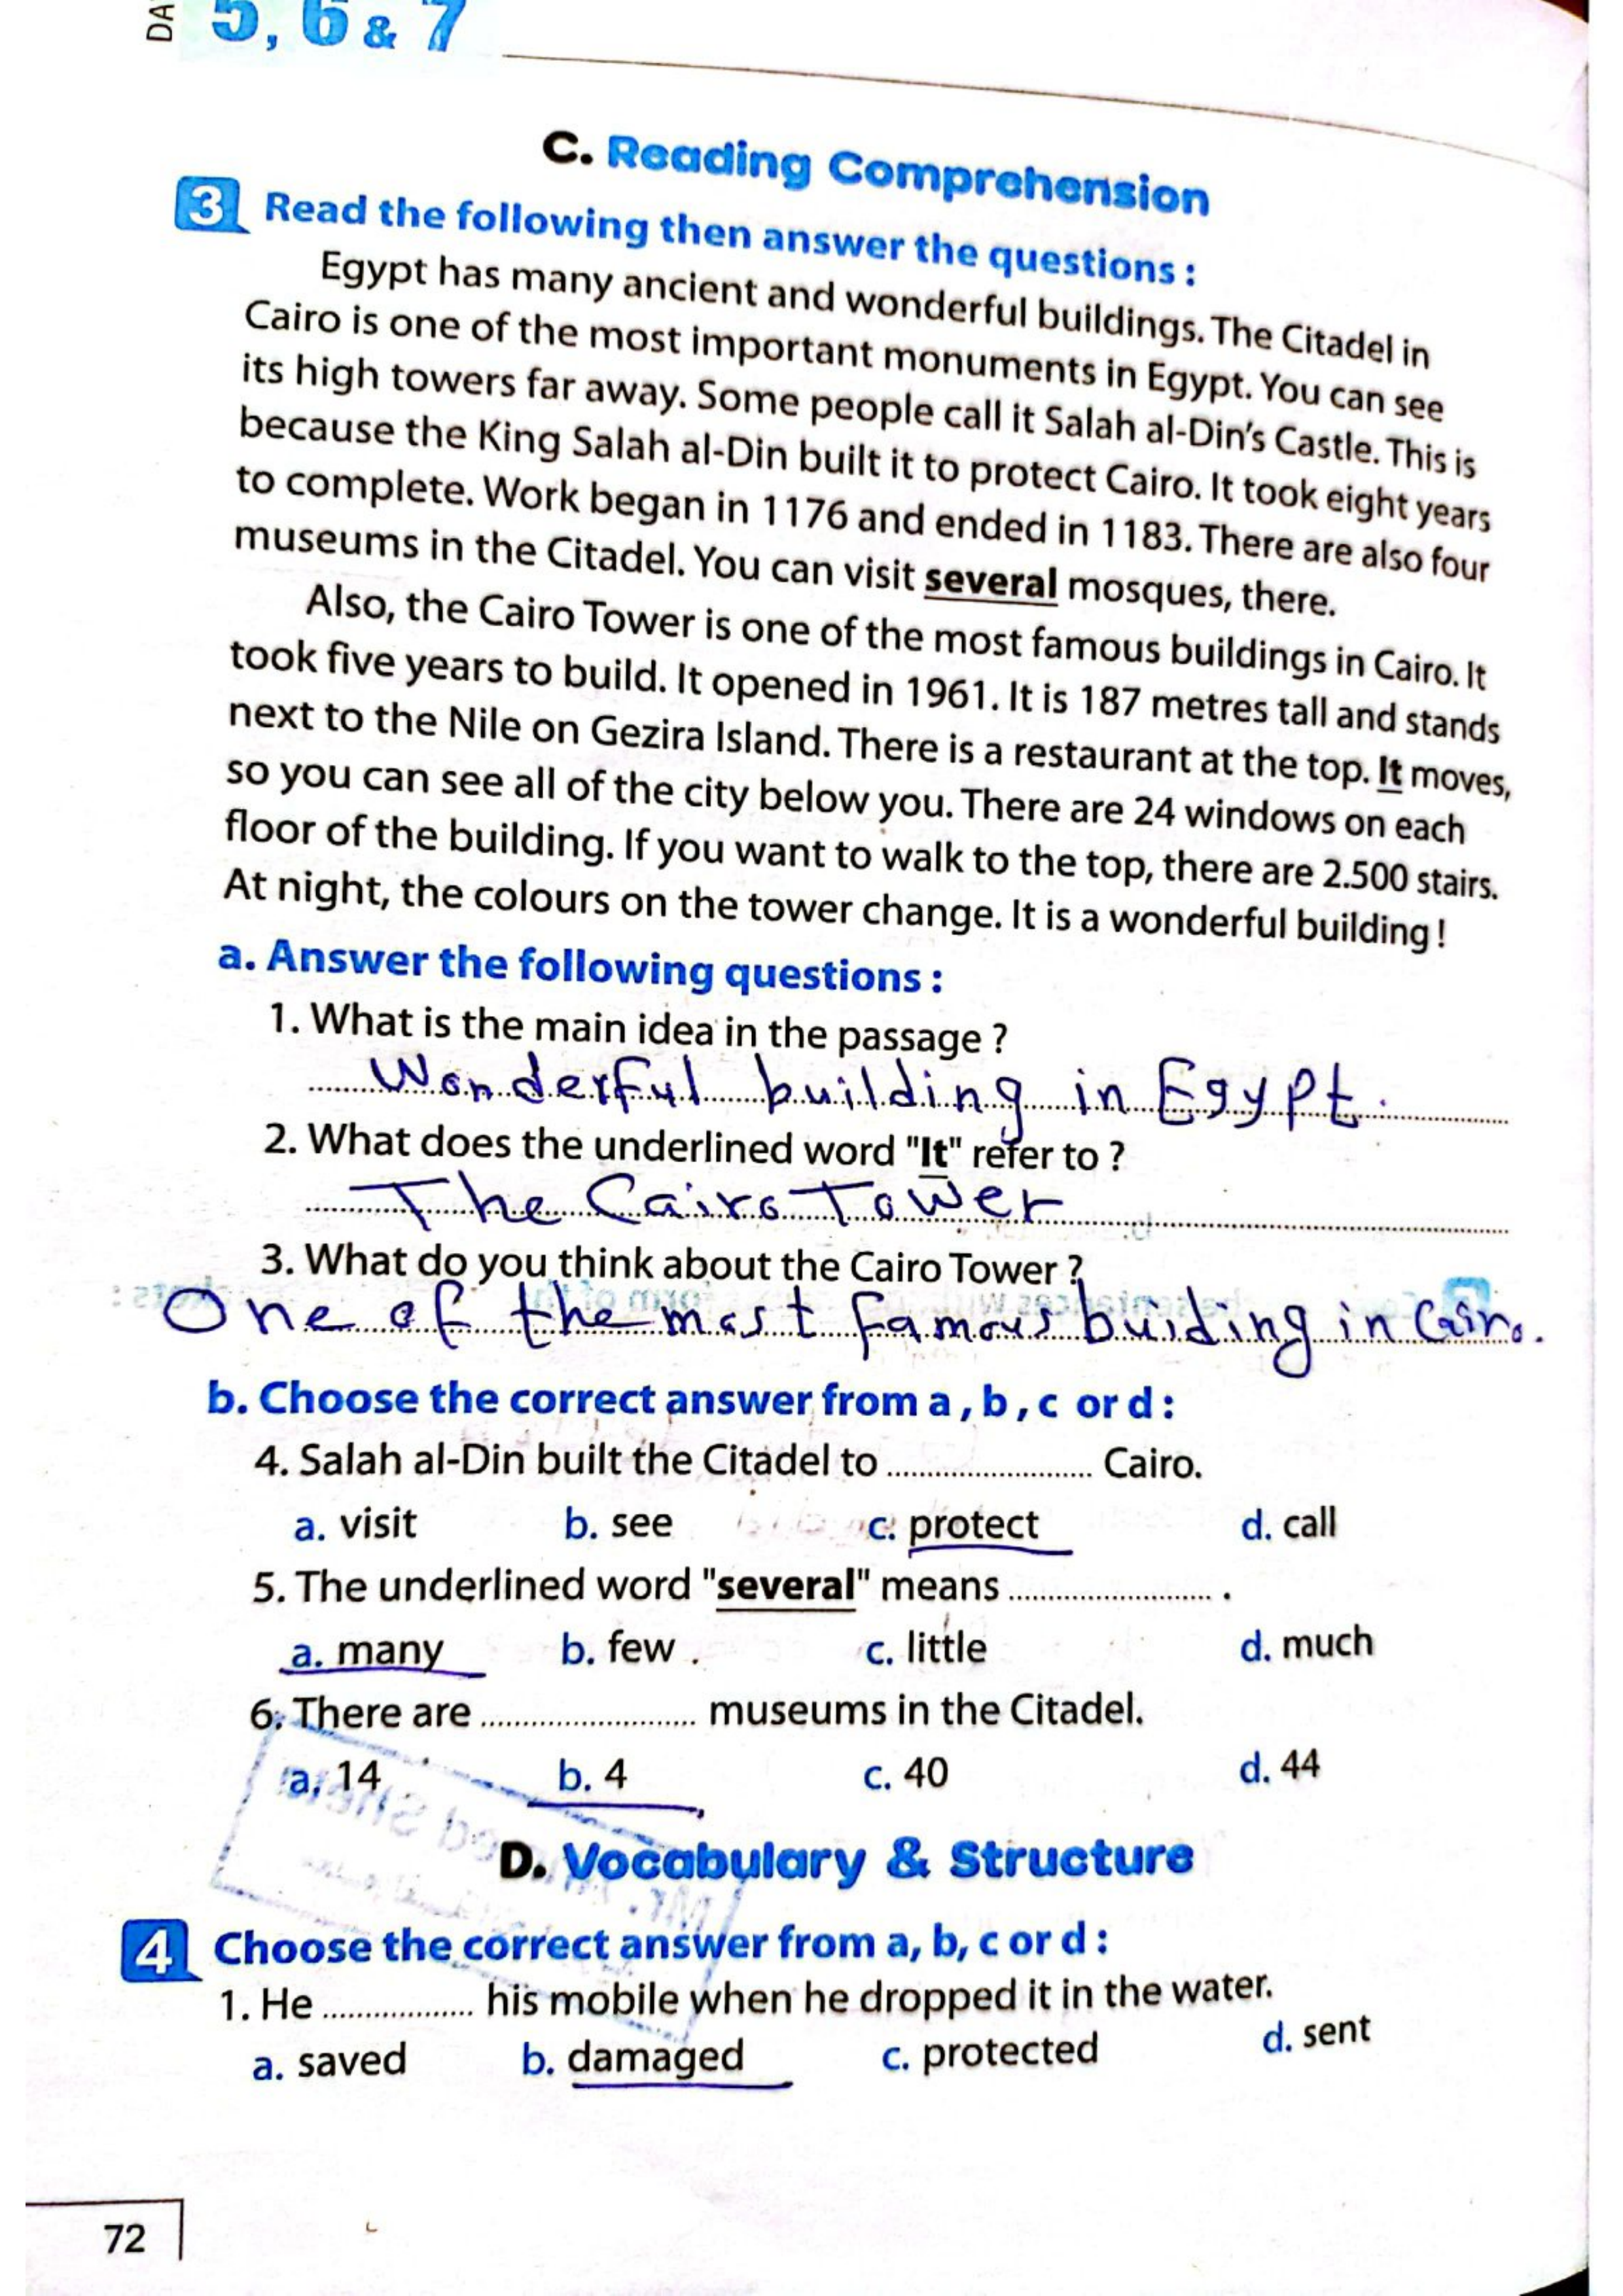 DA
5, 6 & 7
C. Reading Comprehension
3 Read the following then answer the questions :
Egypt has many ancient and wonderful buildings. The Citadel in
Cairo is one of the most important monuments in Egypt. You can see
its high towers far away. Some people call it Salah al-Din's Castle. This is
because the King Salah al-Din built it to protect Cairo. It took eight years
to complete. Work began in 1176 and ended in 1183. There are also four
museums in the Citadel. You can visit several mosques, there.
Also, the Cairo Tower is one of the most famous buildings in Cairo. It
took five years to build. It opened in 1961. It is 187 metres tall and stands
next to the Nile on Gezira Island. There is a restaurant at the top. It moves,
so you can see all of the city below you. There are 24 windows on each
floor of the building. If you want to walk to the top, there are 2.500 stairs.
At night, the colours on the tower change. It is a wonderful building !
a. Answer the following questions :
1. What is the main idea in the passage ?
Wonderful building in Egypt.
2. What does the underlined word "It" refer to ?
The Cairo Tower
3. What do you think about the Cairo Tower ?
One of the most famous buiding in Cairo.
b. Choose the correct answer from a , b , c or d :
4. Salah al-Din built the Citadel to ........................ Cairo.
a. visit b. see c. protect d. call
5. The underlined word "several" means ........................ .
a. many b. few . c. little d. much
6. There are ........................ museums in the Citadel.
a. 14 b. 4 c. 40 d. 44
D. Vocabulary & Structure
4 Choose the correct answer from a, b, c or d :
1. He .................. his mobile when he dropped it in the water.
a. saved b. damaged c. protected d. sent
72